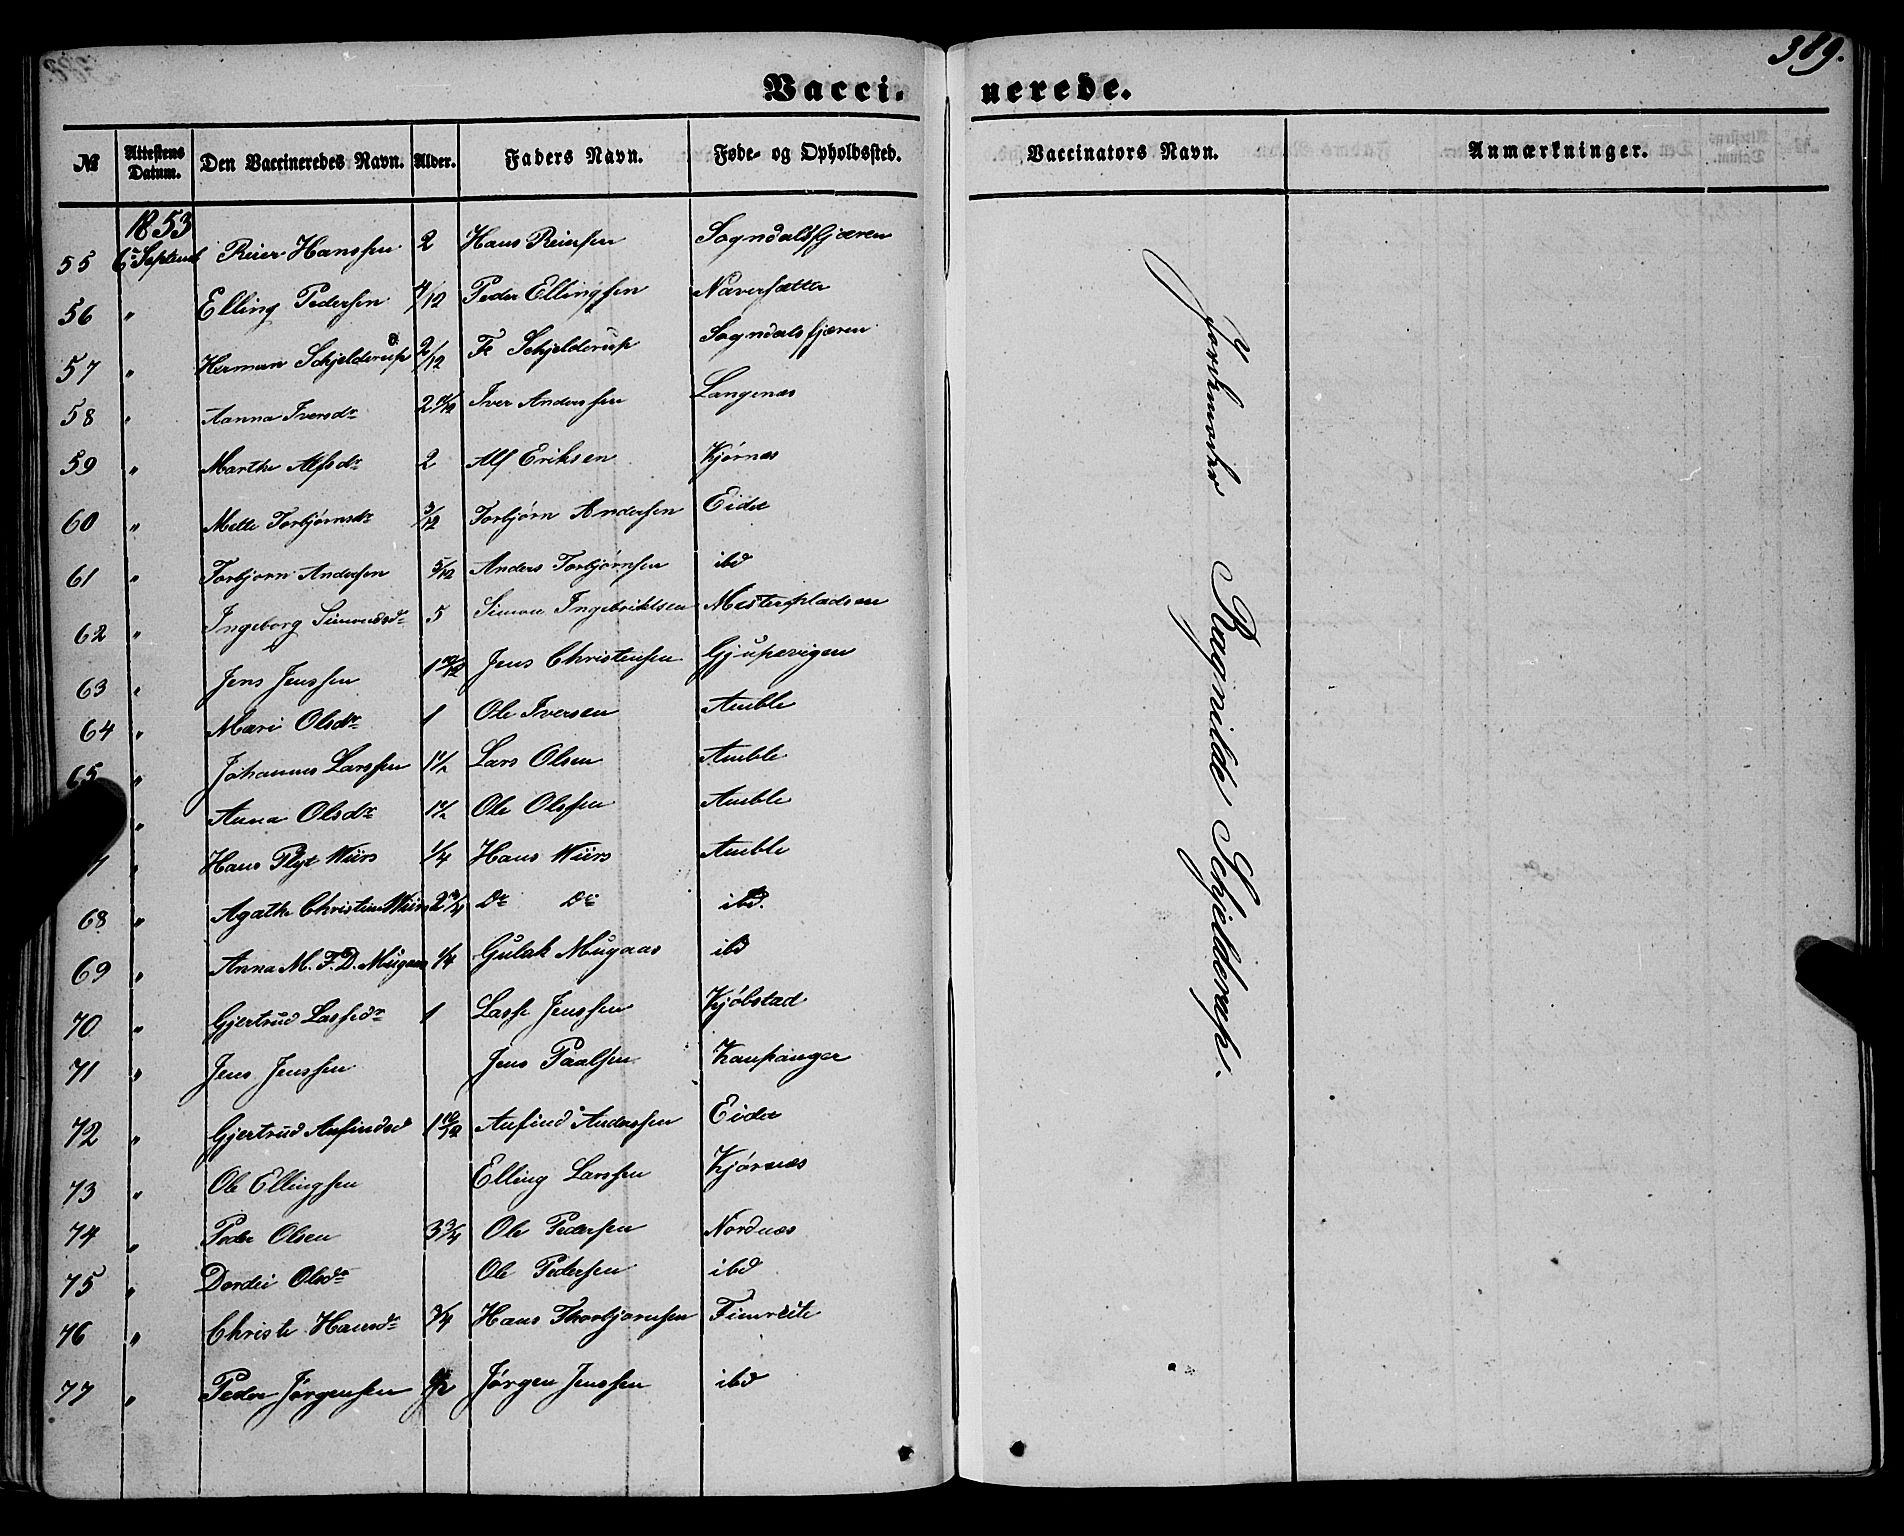 389.
Vacci. nerede.
№ Attestens Datum. Den Vaccineredes Navn. Alder. Faders Navn. Føde- og Opholdssted. Vaccinators Navn. Anmærkninger.
1853
55 6 Septemb Reier Hanssen 2 Hans Reiersen Sogndalsfjæren
56 " Elling Pedersen 4/12 Peder Ellingsen Naversætter
57 " Herman Schjelderup 2/12 Fr Schjelderup Sogndalsfjæren
58 " Aanna Iversdr Iver Anderssen Langenæs
59 " Marthe Alfsdr 2 Alf Eriksen Kjørnæs
60 " Mette Torbjørnsdr 3/12 Torbjørn Andersen Eidet
61 " Torbjørn Andersen 5/12 Anders Torbjørnsen ibd
62 " Ingeborg Simonsdr 5 Simon Ingebriktsen Mesterpladsen
63 " Jens Jenssen 1 10/12 Jens Christensen Gjupevigen
64 " Mari Olsdr 1 Ole Iversen Amble
65 " Johannes Larssen 1 1/2 Lars Olsen Amble
" Anna Olsdr 1 1/2 Ole Olssen Amble
7 " Hans Plyt Wiirs 1/4 Hans Wiirs Amble
68 " Agathe Christine Wiirs 2 3/4 Do Do ibd.
69 " Anna M. F. D. Mugaas 1/4 Gulak Mugaas ibd
70 " Gjertrud Lassedr 1 Lasse Jenssen Kjøbstad
71 " Jens Jenssen Jens Paalsen Kaupanger
72 " Gjertrud Anfindsd 1 10/12 Anfind Anderssen Eidet
73 " Ole Ellingsen Elling Larssen Kjørnæs
74 " Peder Olsen 3 3/4 Ole Pedersen Nordnæs
75 " Dordei Olsdr Ole Pedersen ibd
76 " Christi Hansdr 3/4 Hans Thorbjørnsen Fimreite
77 " Peder Jørgensen 1/2 Jørgen Jenssen ibd
Jordemoder Ragnilde Schjelderup.